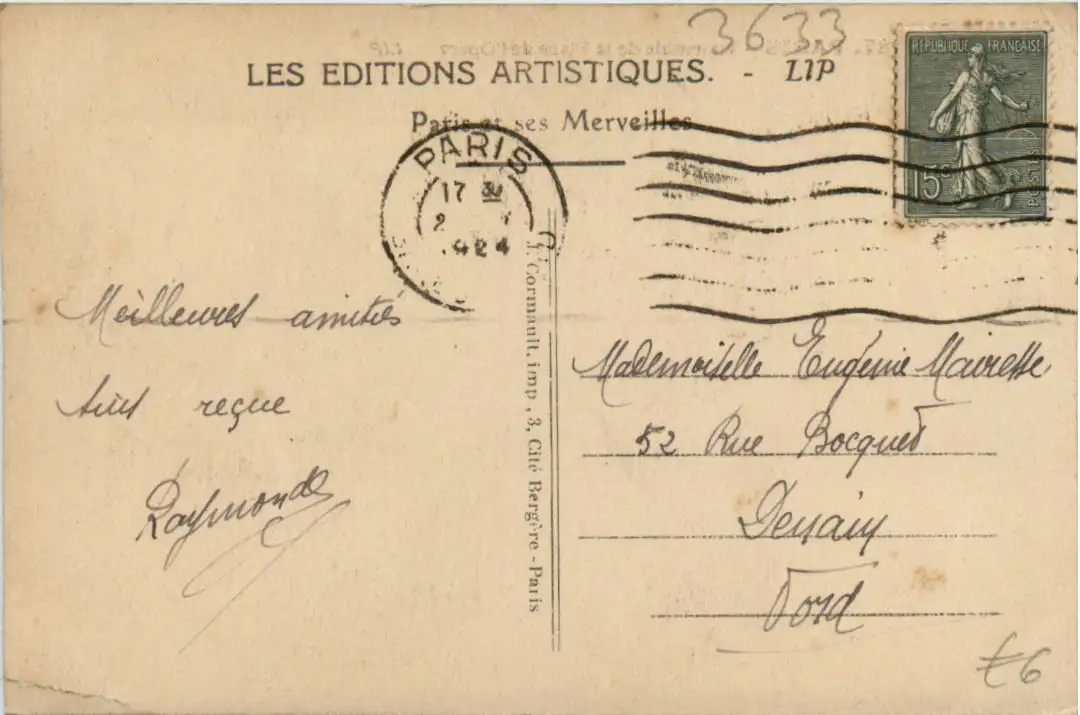 3633
LES EDITIONS ARTISTIQUES. - LIP
Paris et ses Merveilles
RÉPUBLIQUE FRANÇAISE
15c
POSTES
PARIS
17
2
1924
J. Cormault, imp., 3, Cité Bergère - Paris
Meilleures amitiés
reçue
Raymonde
Mademoiselle Eugénie Mairesse
52 Rue Bocquet
Denain
Nord
€6